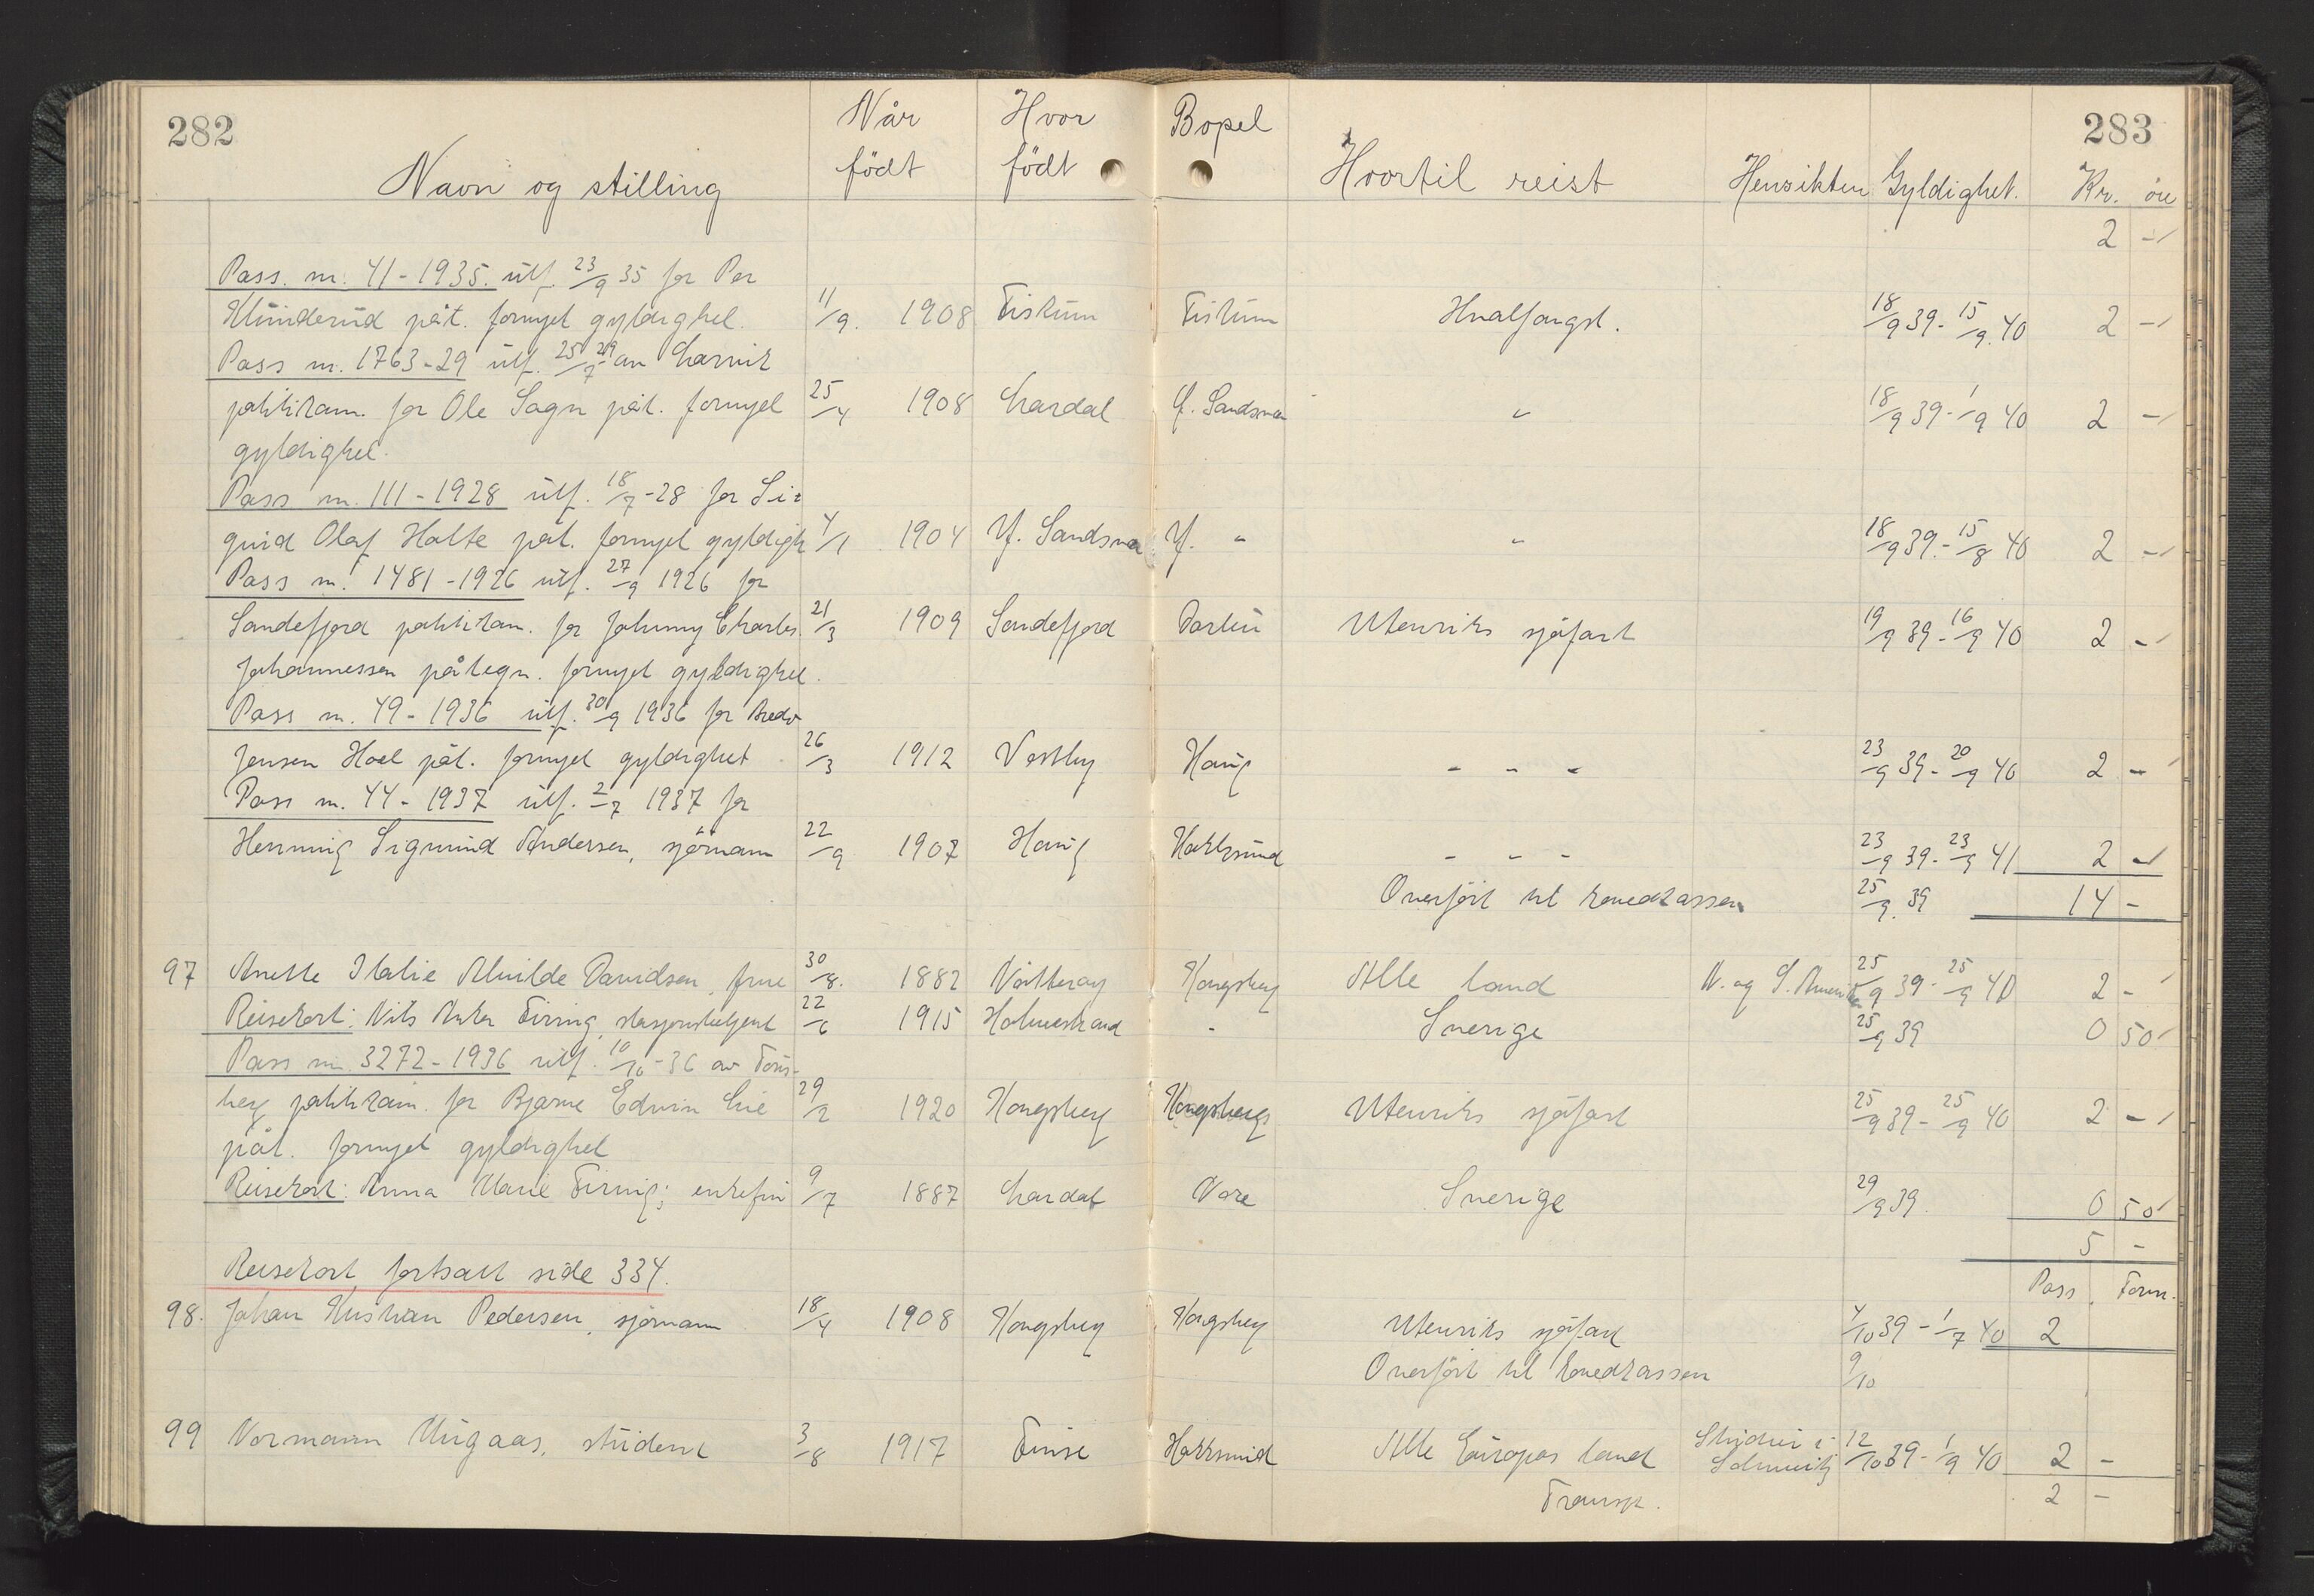 282
283
Navn og stilling
Når født
Hvor født
Bopel
Hvortil reist
Hensikten
Gyldighet.
Kr. öre
2 -
Pass. nr. 41-1935. utf. 23/9 35 for Per
Klunderud påt. fornyet gyldighet. 11/9. 1908 Fiskum Fiskum Hvalfangst. 18/9 39 - 15/9. 40 2 -
Pass nr. 1763-29 utf. 25/7 29 av Larvik
politikam. for Ole Sagn påt. fornyet 25/4 1908 Lardal Y. Sandsvær " 18/9 39 - 1/9 40 2 -
gyldighet.
Pass nr. 111-1928 utf. 18/7-28 for Si=
gurd Olaf Holte påt. fornyet gyldigh 4/1 1904 Y. Sandsvær Y. " " 18/9 39. - 15/8 40 2 -
Pass nr. 1481-1926 utf. 27/9 1926 for
Sandefjord politikam. for Johnny Charles 21/3 1909 Sandefjord Darbu Utenriks sjöfart 19/9 39 - 16/9 40 2 -
Johannessen påtegn. fornyet gyldighet.
Pass nr. 49-1936 utf. 30/9 1936 for
Jensen Hoel påt. fornyet gyldighet 26/3 1912 Vestby Haug - - - 23/9 39 - 20/9 40 2 -
Pass nr. 44-1937 utf. 2/7 1937 for
Henning Sigmund Andersen, sjömann 22/9 1907 Haug Hokksund - - - 23/9 39 - 23/9 41 2 -
Overfört til hovedkassen 25/9. 39 14 -
97 Anette Italie Alvilde Davidsen, frue 30/8. 1882 Nötteröy Kongsberg Alle land N. og S. Amerika 25/9 39 - 25/9 40 2 -
Reisekort: Nils Anker Firing, stasjonsbetjent 22/6 1915 Holmestrand " Sverige 25/9 39 0 50
Pass nr. 3272-1936 utf. 10/10-36 av Töns-
berg politikam. for Bjarne Edvin Lie 29/2 1920 Kongsberg Kongsberg Utenriks sjöfart 25/9 39 - 25/9 40 2 -
påt. fornyet gyldighet
Reisekort: Anna Marie Firing; enkefru 9/7 1887 Lardal Nore Sverige 29/9 39 0 50
5 -
Reisekort fortsatt side 334.
Pass. Forn.
98. Johan Kristian Pedersen, sjömann 18/4 1908 Kongsberg Kongsberg Utenriks sjöfart 4/10 39 - 1/7 40 2
Overfört til hovedkassen 9/10
99 Normann Ungaas, student 3/8 1917 Finse Hokksund Alle Europas land Studier i Schweitz 12/10 39 - 1/9 40 2 -
Transp. 2 -